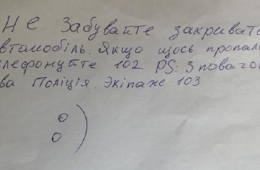 Не забувайте закриват
втомобіль. Якщо щось пропал
лефонуйте 102 PS: З повагою
ва Поліція. Экіпаже 103